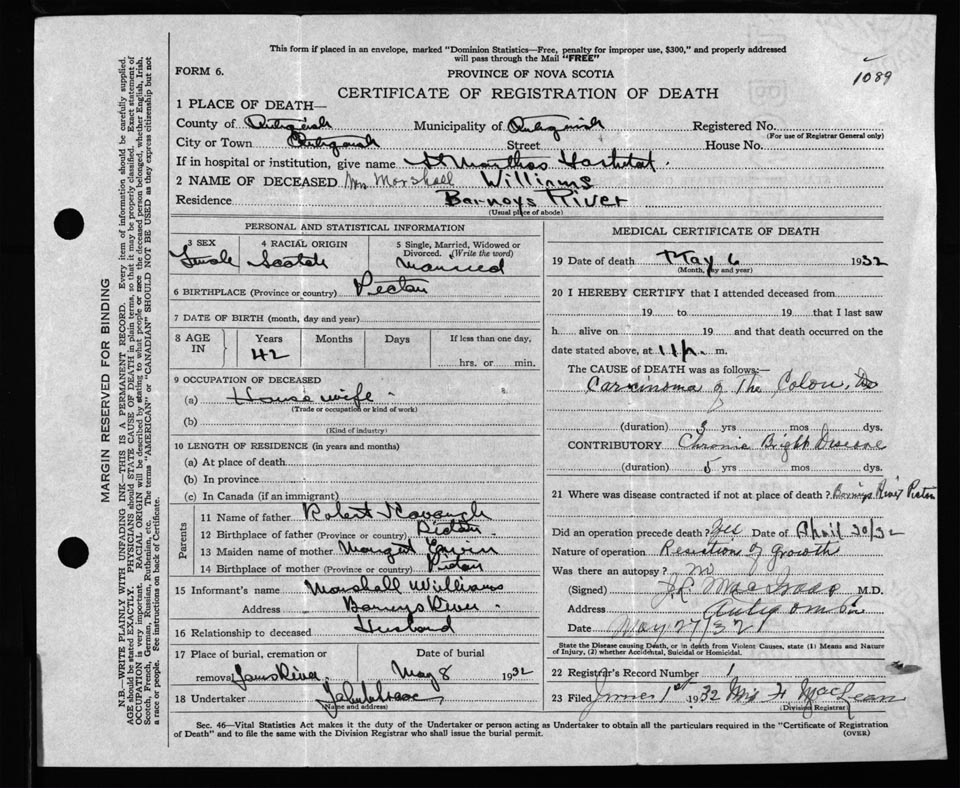 This form if placed in an envelope, marked "Dominion Statistics—Free, penalty for improper use, $300," and properly addressed
will pass through the Mail "FREE"
FORM 6.
PROVINCE OF NOVA SCOTIA
1089
CERTIFICATE OF REGISTRATION OF DEATH
1 PLACE OF DEATH—
County of Antigonish Municipality of Antigonish Registered No.
(For use of Registrar General only)
City or Town Antigonish Street House No.
If in hospital or institution, give name St Marthas Hospital.
2 NAME OF DECEASED Mrs Marshall Williams
Residence Barneys River
(Usual place of abode)
PERSONAL AND STATISTICAL INFORMATION
3 SEX 4 RACIAL ORIGIN 5 Single, Married, Widowed or Divorced. (Write the word)
Female Scotch Married
6 BIRTHPLACE (Province or country) Pictou
7 DATE OF BIRTH (month, day and year)
8 AGE IN Years Months Days If less than one day,
42 hrs. or min.
9 OCCUPATION OF DECEASED
(a) House wife
(Trade or occupation or kind of work)
(b)
(Kind of industry)
10 LENGTH OF RESIDENCE (in years and months)
(a) At place of death
(b) In province
(c) In Canada (if an immigrant)
Parents
11 Name of father Robert
12 Birthplace of father (Province or country) Pictou
13 Maiden name of mother Margret
14 Birthplace of mother (Province or country) Pictou
15 Informant's name Marshall Williams
Address Barneys River
16 Relationship to deceased Husband
17 Place of burial, cremation or removal Date of burial
James River May 8 1932
18 Undertaker
(Name and address)
MEDICAL CERTIFICATE OF DEATH
19 Date of death May 6 1932
(Month, day and year)
20 I HEREBY CERTIFY that I attended deceased from
19 to 19 that I last saw
h alive on 19 and that death occurred on
date stated above, at 11 p. m.
The CAUSE of DEATH was as follows:—
Carcinoma of The Colon
(duration) 3 yrs mos dys.
CONTRIBUTORY Chronic Bright Disease
(duration) 5 yrs mos. dys.
21 Where was disease contracted if not at place of death? Barneys River Pictou
Did an operation precede death? Yes Date of April 30/32
Nature of operation of Growth
Was there an autopsy? No
(Signed) M.D.
Address Antigonish
Date May 27/32
State the Disease causing Death, or in death from Violent Causes, state (1) Means and Nature
of Injury, (2) whether Accidental, Suicidal or Homicidal.
22 Registrar's Record 1
23 Filed June 1st 1932 MacLean
(Division Registrar)
Sec. 46—Vital Statistics Act makes it the duty of the Undertaker or person acting as Undertaker to obtain all the particulars required in the "Certificate of Registration
of Death" and to file the same with the Division Registrar who shall issue the burial permit. (OVER)
MARGIN RESERVED FOR BINDING
N.B.—WRITE PLAINLY WITH UNFADING INK—THIS IS A PERMANENT RECORD. Every item of information should be carefully supplied.
AGE should be stated EXACTLY. PHYSICIANS should STATE CAUSE OF DEATH in plain terms, so that it may be properly classified. Exact statement of
OCCUPATION is very important. RACIAL ORIGIN will be described by stating to what people or race the deceased person belonged, whether English, Irish,
Scotch, French, German, Russian, Ruthenian, etc. The terms "AMERICAN" or "CANADIAN" SHOULD NOT BE USED as they express citizenship but not
a race or people. See instructions on back of Certificate.